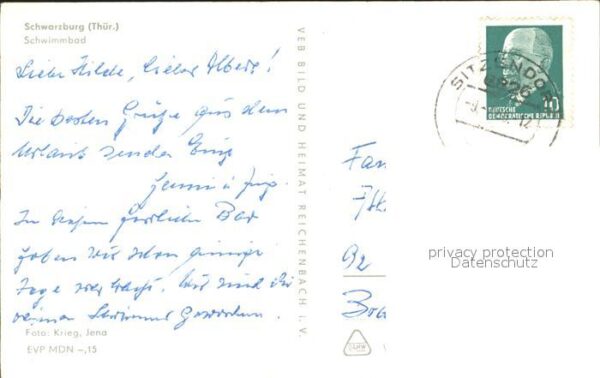 Schwarzburg (Thür.)
Schwimmbad
Liebe Hilde, lieber Albert!
Die besten Grüße aus dem
Urlaub senden Euch
In diesem herrlichen Bad
haben wir schon einige
Tage verbracht. Wir sind die
reinen geworden.
Foto: Krieg, Jena
EVP MDN -,15
VEB BILD UND HEIMAT REICHENBACH i. V.
SITZENDORF
10
DEUTSCHE
DEMOKRATISCHE REPUBLIK
Fam
92
privacy protection
Datenschutz